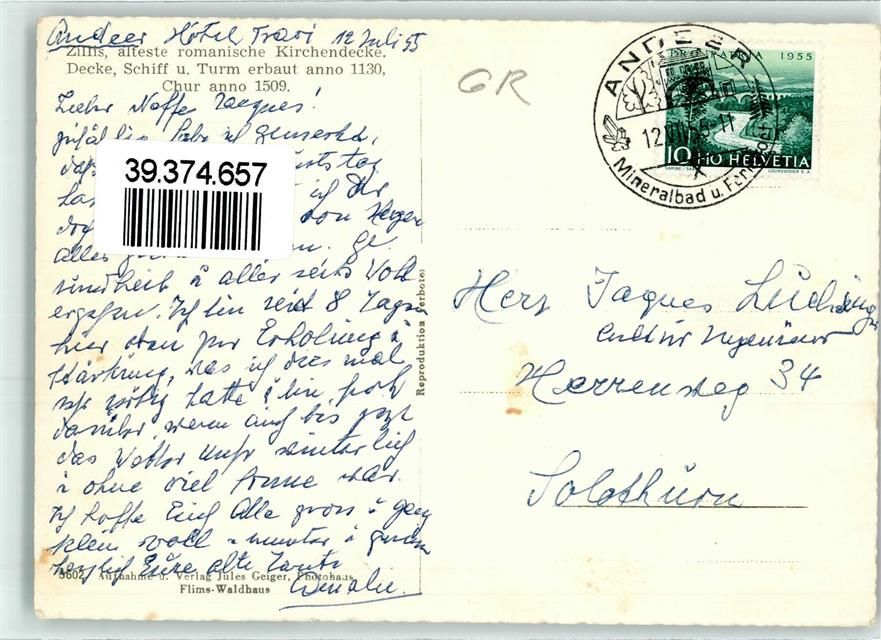 Andeer Hotel Fravi 12 Juli 55
Zillis, älteste romanische Kirchendecke.
Decke, Schiff u. Turm erbaut anno 1130,
Chur anno 1509.
Lieber Neffe Jacques!
zufällig habe ich gemerkt,
dass
ich Dir
von Herzen
alles
Ge
sundheit u allerseits Wohl
ergehen. Ich bin seit 8 Tagen
hier oben zur Erholung u
Stärkung, was ich dies mal
sehr nötig hatte u bin froh
darüber, wenn auch bis jetzt
das Wetter mehr winterlich
u ohne viel Sonne war.
Ich hoffe Euch Alle gross u ganz
klein wohl u munter u grüsse
herzlich Eure alte Tante
5602 Aufnahme u. Verlag Jules Geiger, Photohaus
Flims-Waldhaus
39.374.657
Reproduktion verboten
GR
ANDEER
12.VII.55-11
Mineralbad u. Ferienort
PRO PATRIA 1955
10+10 HELVETIA
COURVOISIER S.A.
Herr Jaques Lüchinger
Cultur Ingenieur
Herrenweg 34
Solothurn